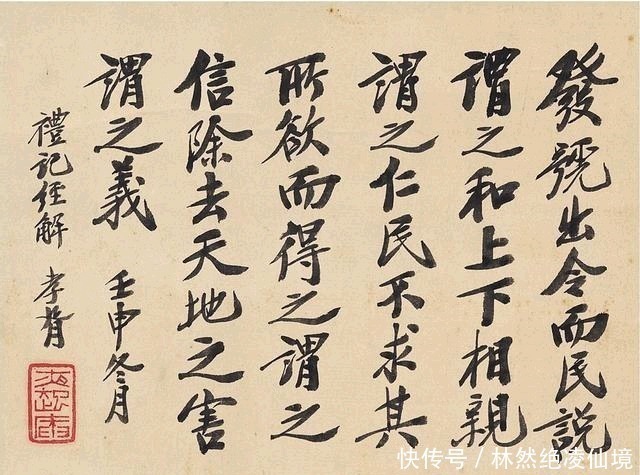 發號出令而民說
謂之和上下相親
謂之仁民不求其
所欲而得之謂之
信除去天地之害
謂之義
壬申冬月
禮記經解 孝胥
快传号 / 林然绝凌仙境